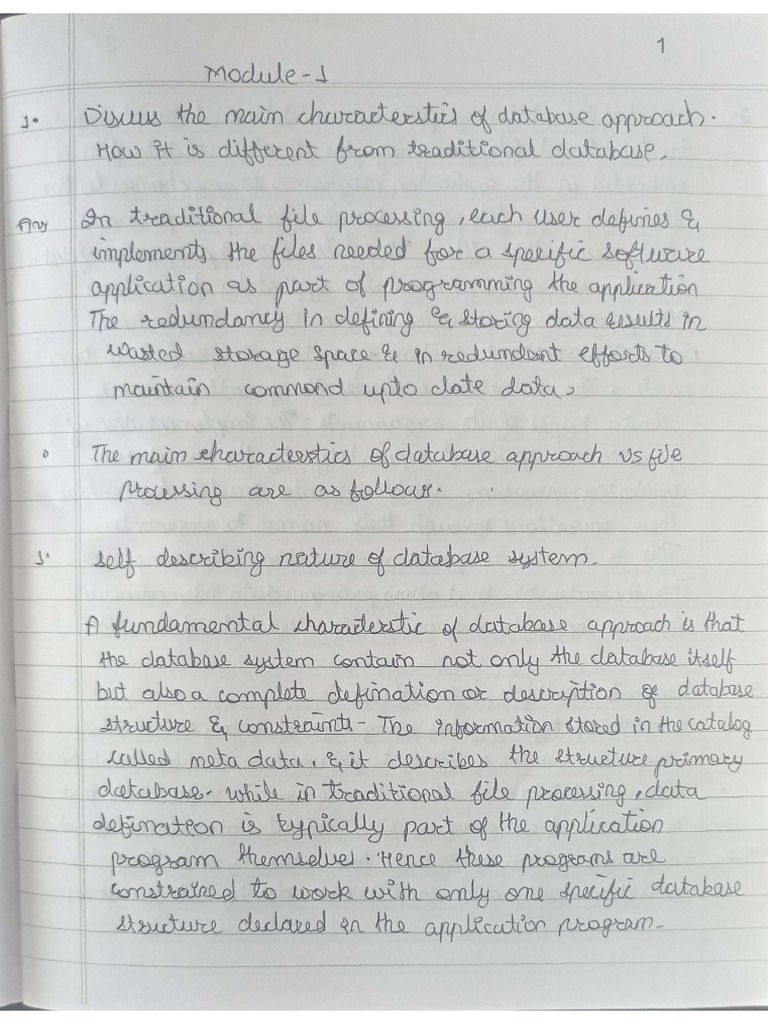 1
Module-1
1. Discuss the main characterstics of database approach.
How it is different from traditional database.
Ans In traditional file processing, each user defines &
implements the files needed for a specific software
application as part of programming the application
The redundancy in defining & storing data results in
wasted storage space & in redundant efforts to
maintain commond upto date data,
The main characterstics of database approach vs file
processing are as follows.
1. self describing nature of database system.
A fundamental characterstic of database approach is that
the database system contain not only the database itself
but also a complete defination or description of database
structure & constraints - The information stored in the catalog
called meta data. & it describes the structure primary
database. while in traditional file processing, data
defination is typically part of the application
program themselves. Hence these programs are
constrained to work with only one specific database
structure declared in the application program.